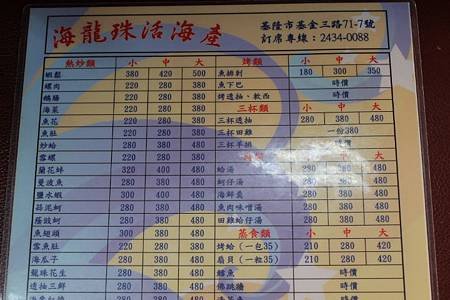 海龍珠活海產
基隆市基金三路71-7號
訂席專線：2434-0088
熱炒類 小 中 大
蝦鬆 380 420 500
螺肉 220 280 380
鵝腸 220 280 380
海菜 220 280 380
魚花 220 280 380
魚肚 220 280 380
炒蛤 220 280 380
雪螺 220 280 380
蘭花蚌 320 400 480
曼波魚 280 380 480
鹽水蝦 300 400 500
蒜泥蚵 280 380 480
蔭豉蚵 280 380 480
魚翅頭 280 380 480
雪魚肚 280 380 480
海瓜子 280 380 480
龍珠花生 280 380 480
透抽三鮮 280 380 480
烤類 小 中 大
魚排刺 180 300 350
魚下巴 時價
烤透抽、軟西 時價
三杯類 小 中 大
三杯透抽 280 380 480
三杯田雞 一份380
三杯羊排 時價
小 中 大
蛤湯 280 380 480
蚵仔湯 280 380 480
海鮮羹 280 380 480
魚肉味噌湯 280 380 480
田雞蛤仔湯 280 380 480
蒸食類 小 中 大
烤蛤（一包35） 210 280 420
扇貝（一粒35） 210 280 420
鱈魚 時價
佛跳牆 時價
時價